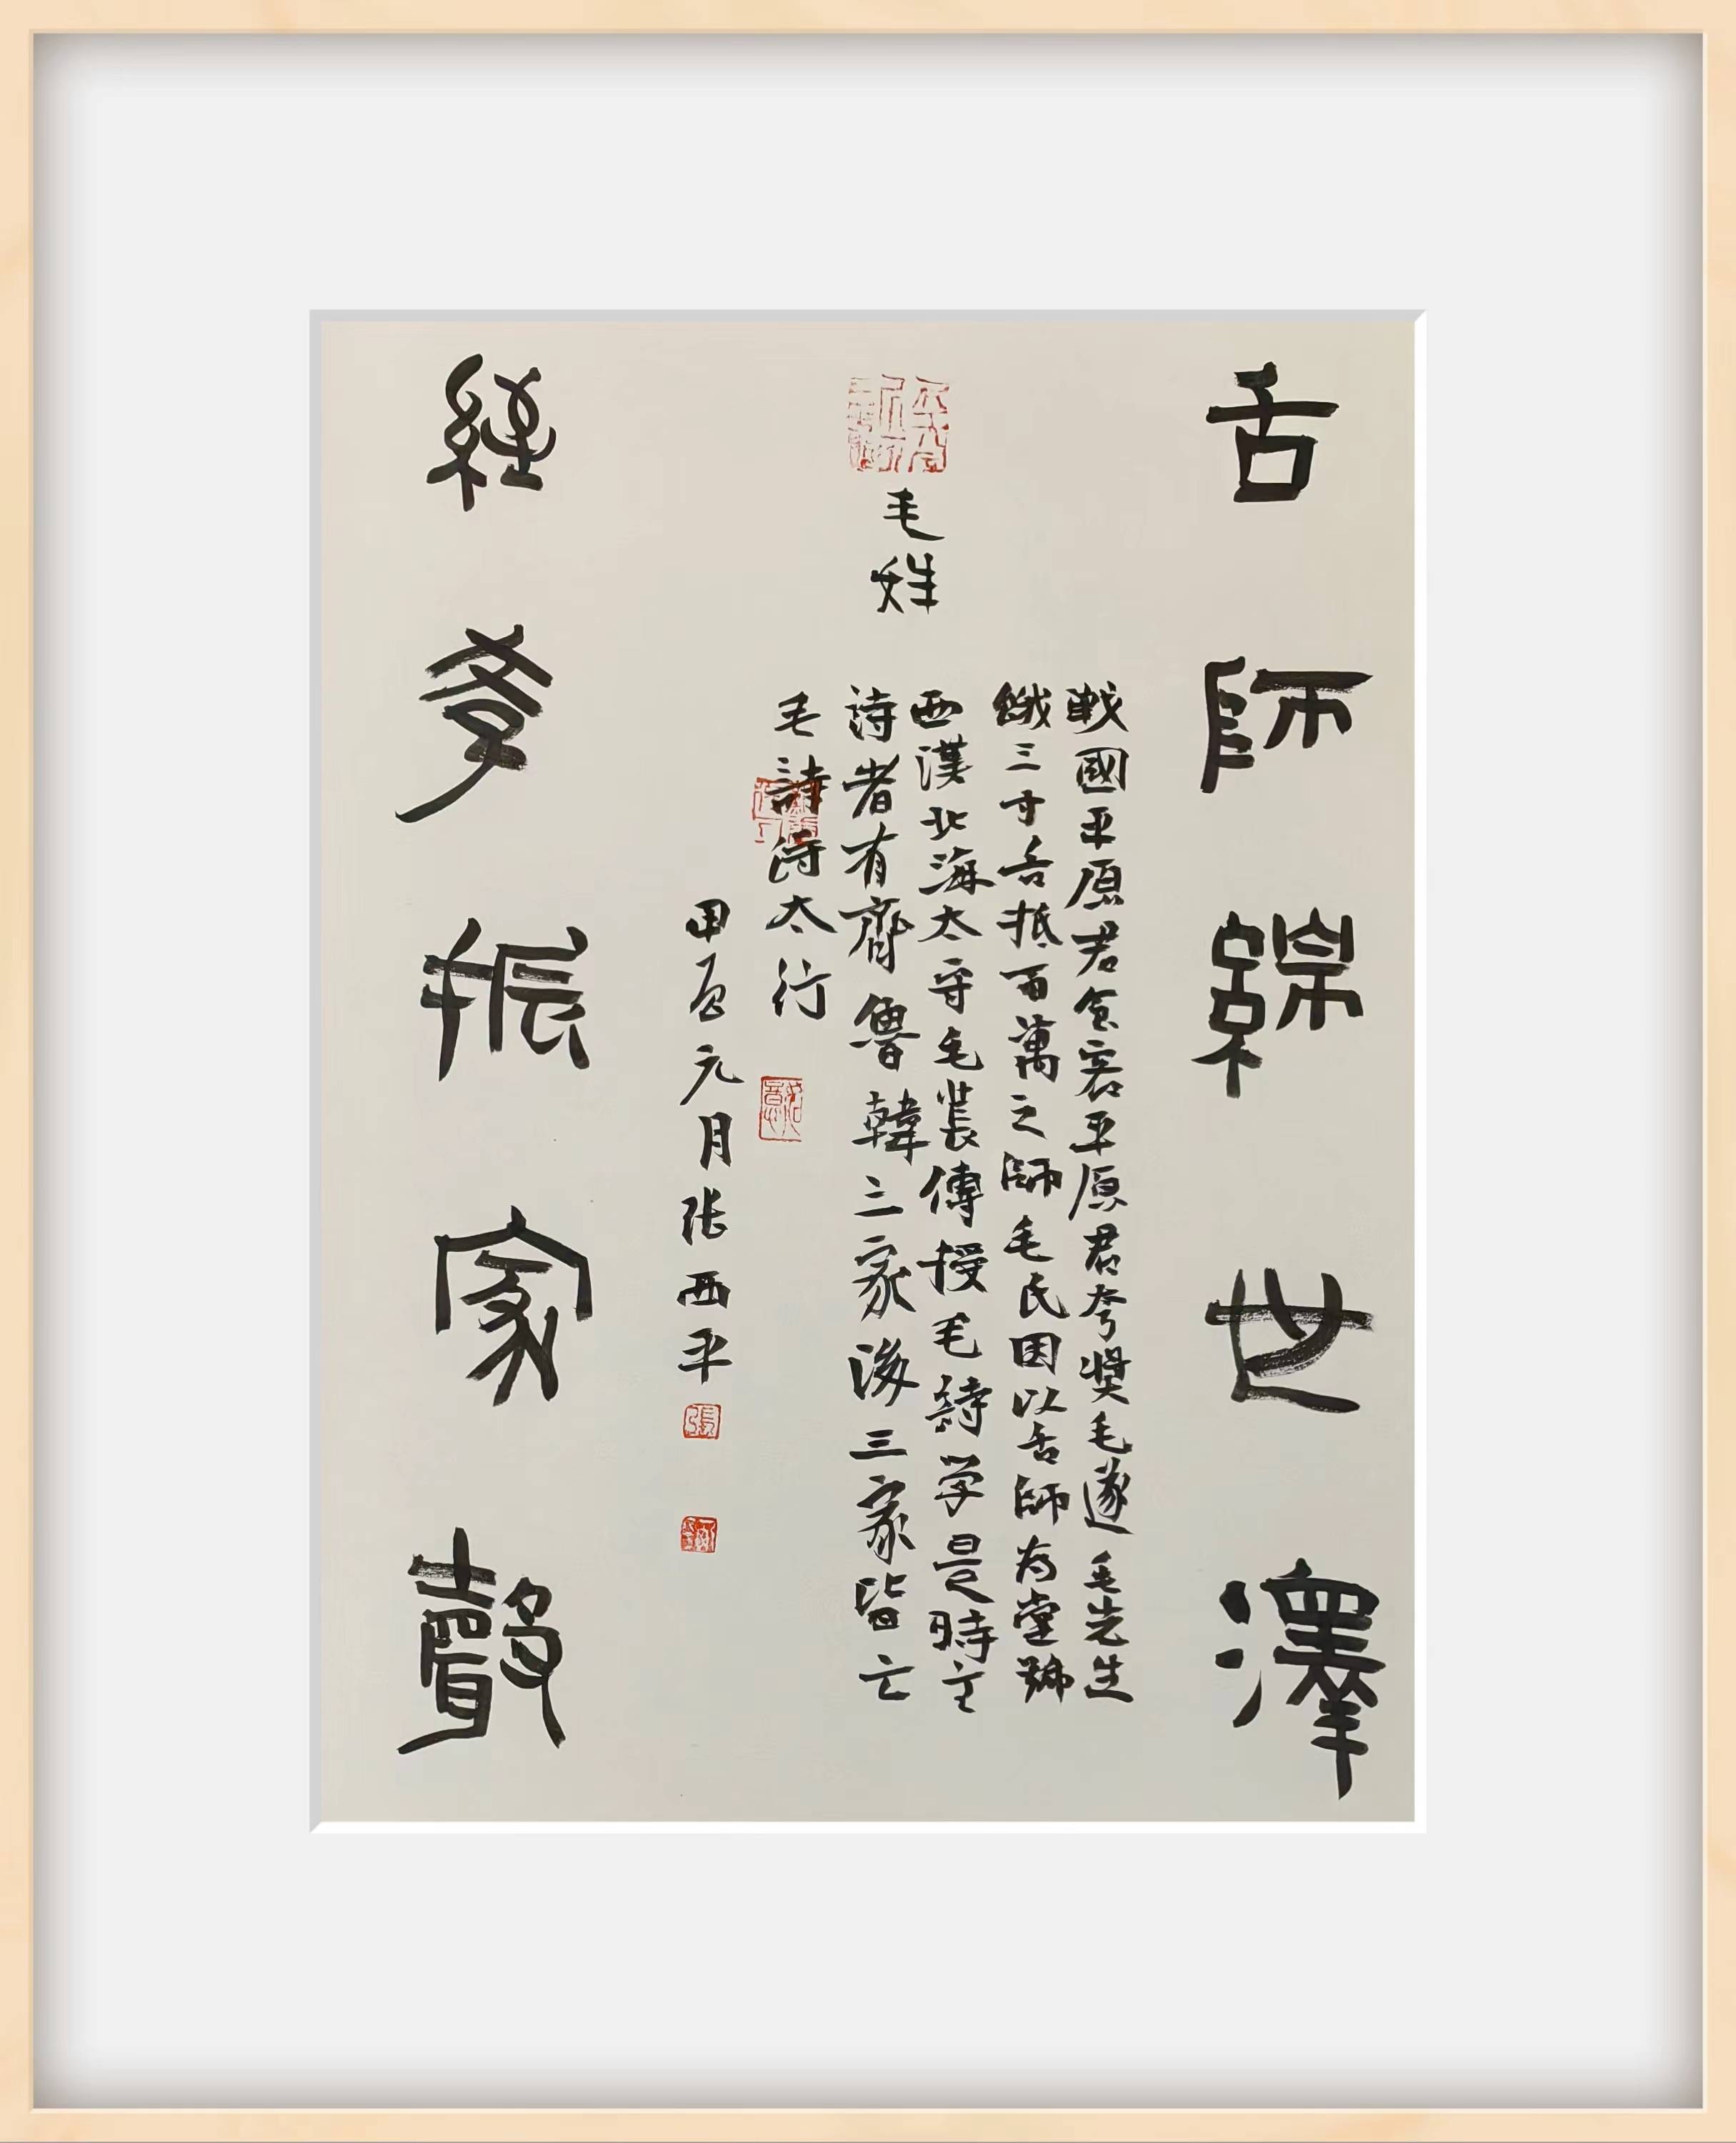 舌師綿世澤
毛姓
戰國平原君食客平原君夸獎毛遂毛先生
三寸舌抵百萬之師毛氏因以舌師为堂號
西漢北海太守毛萇傳授毛詩学是時言
詩者有齊魯韓三家後三家皆亡
毛詩得太行
甲辰元月张西平
張
經學振家聲